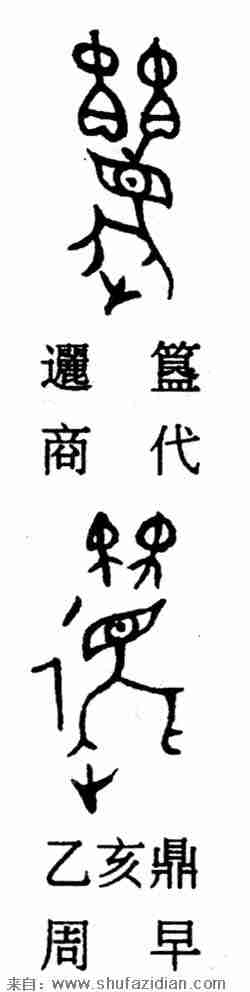 邐簋
商代
乙亥鼎
周早
来自：www.shufazidian.com